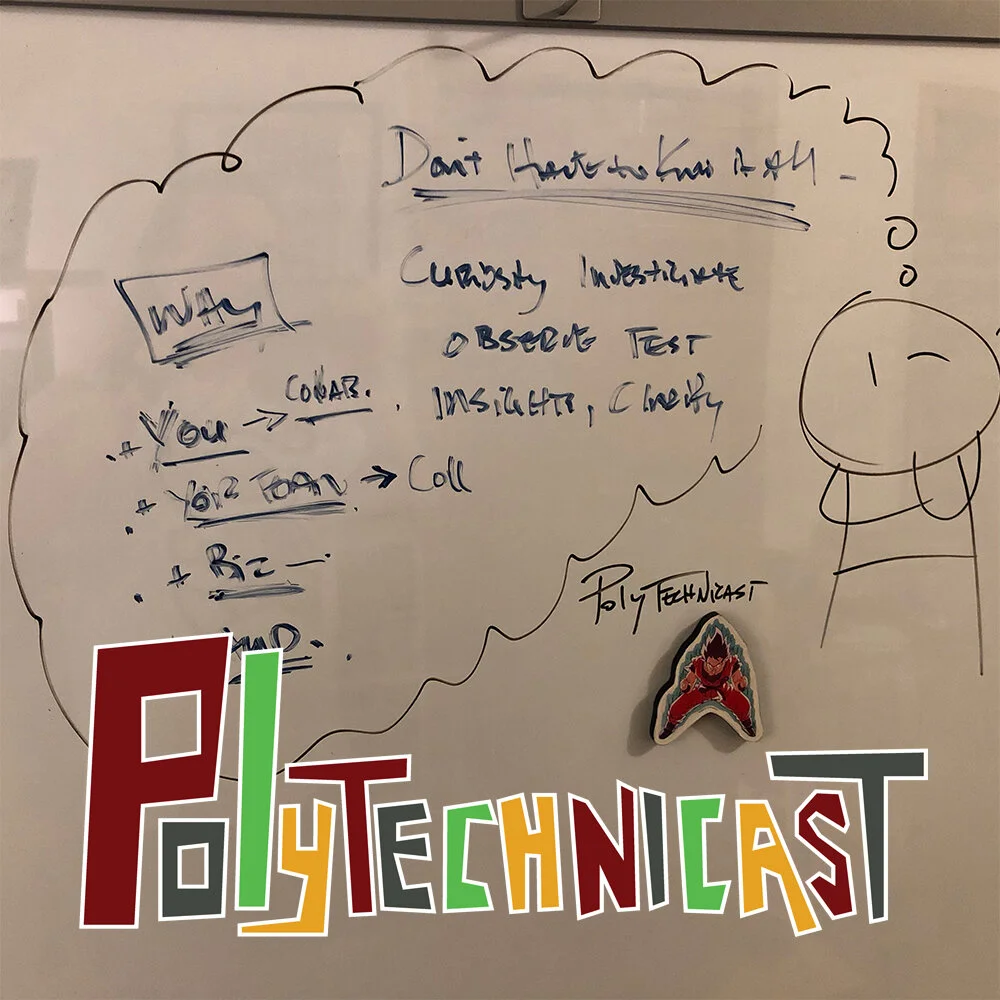 Don't Have to Know it All -
WHY
Curiosity Investigate
OBSERVE TEST
INSIGHTS, Clarity
+ You → COLLAB.
+ YOUR TEAM → Coll
+ Biz —
PolyTECHNICAST
PolyTECHNICAST